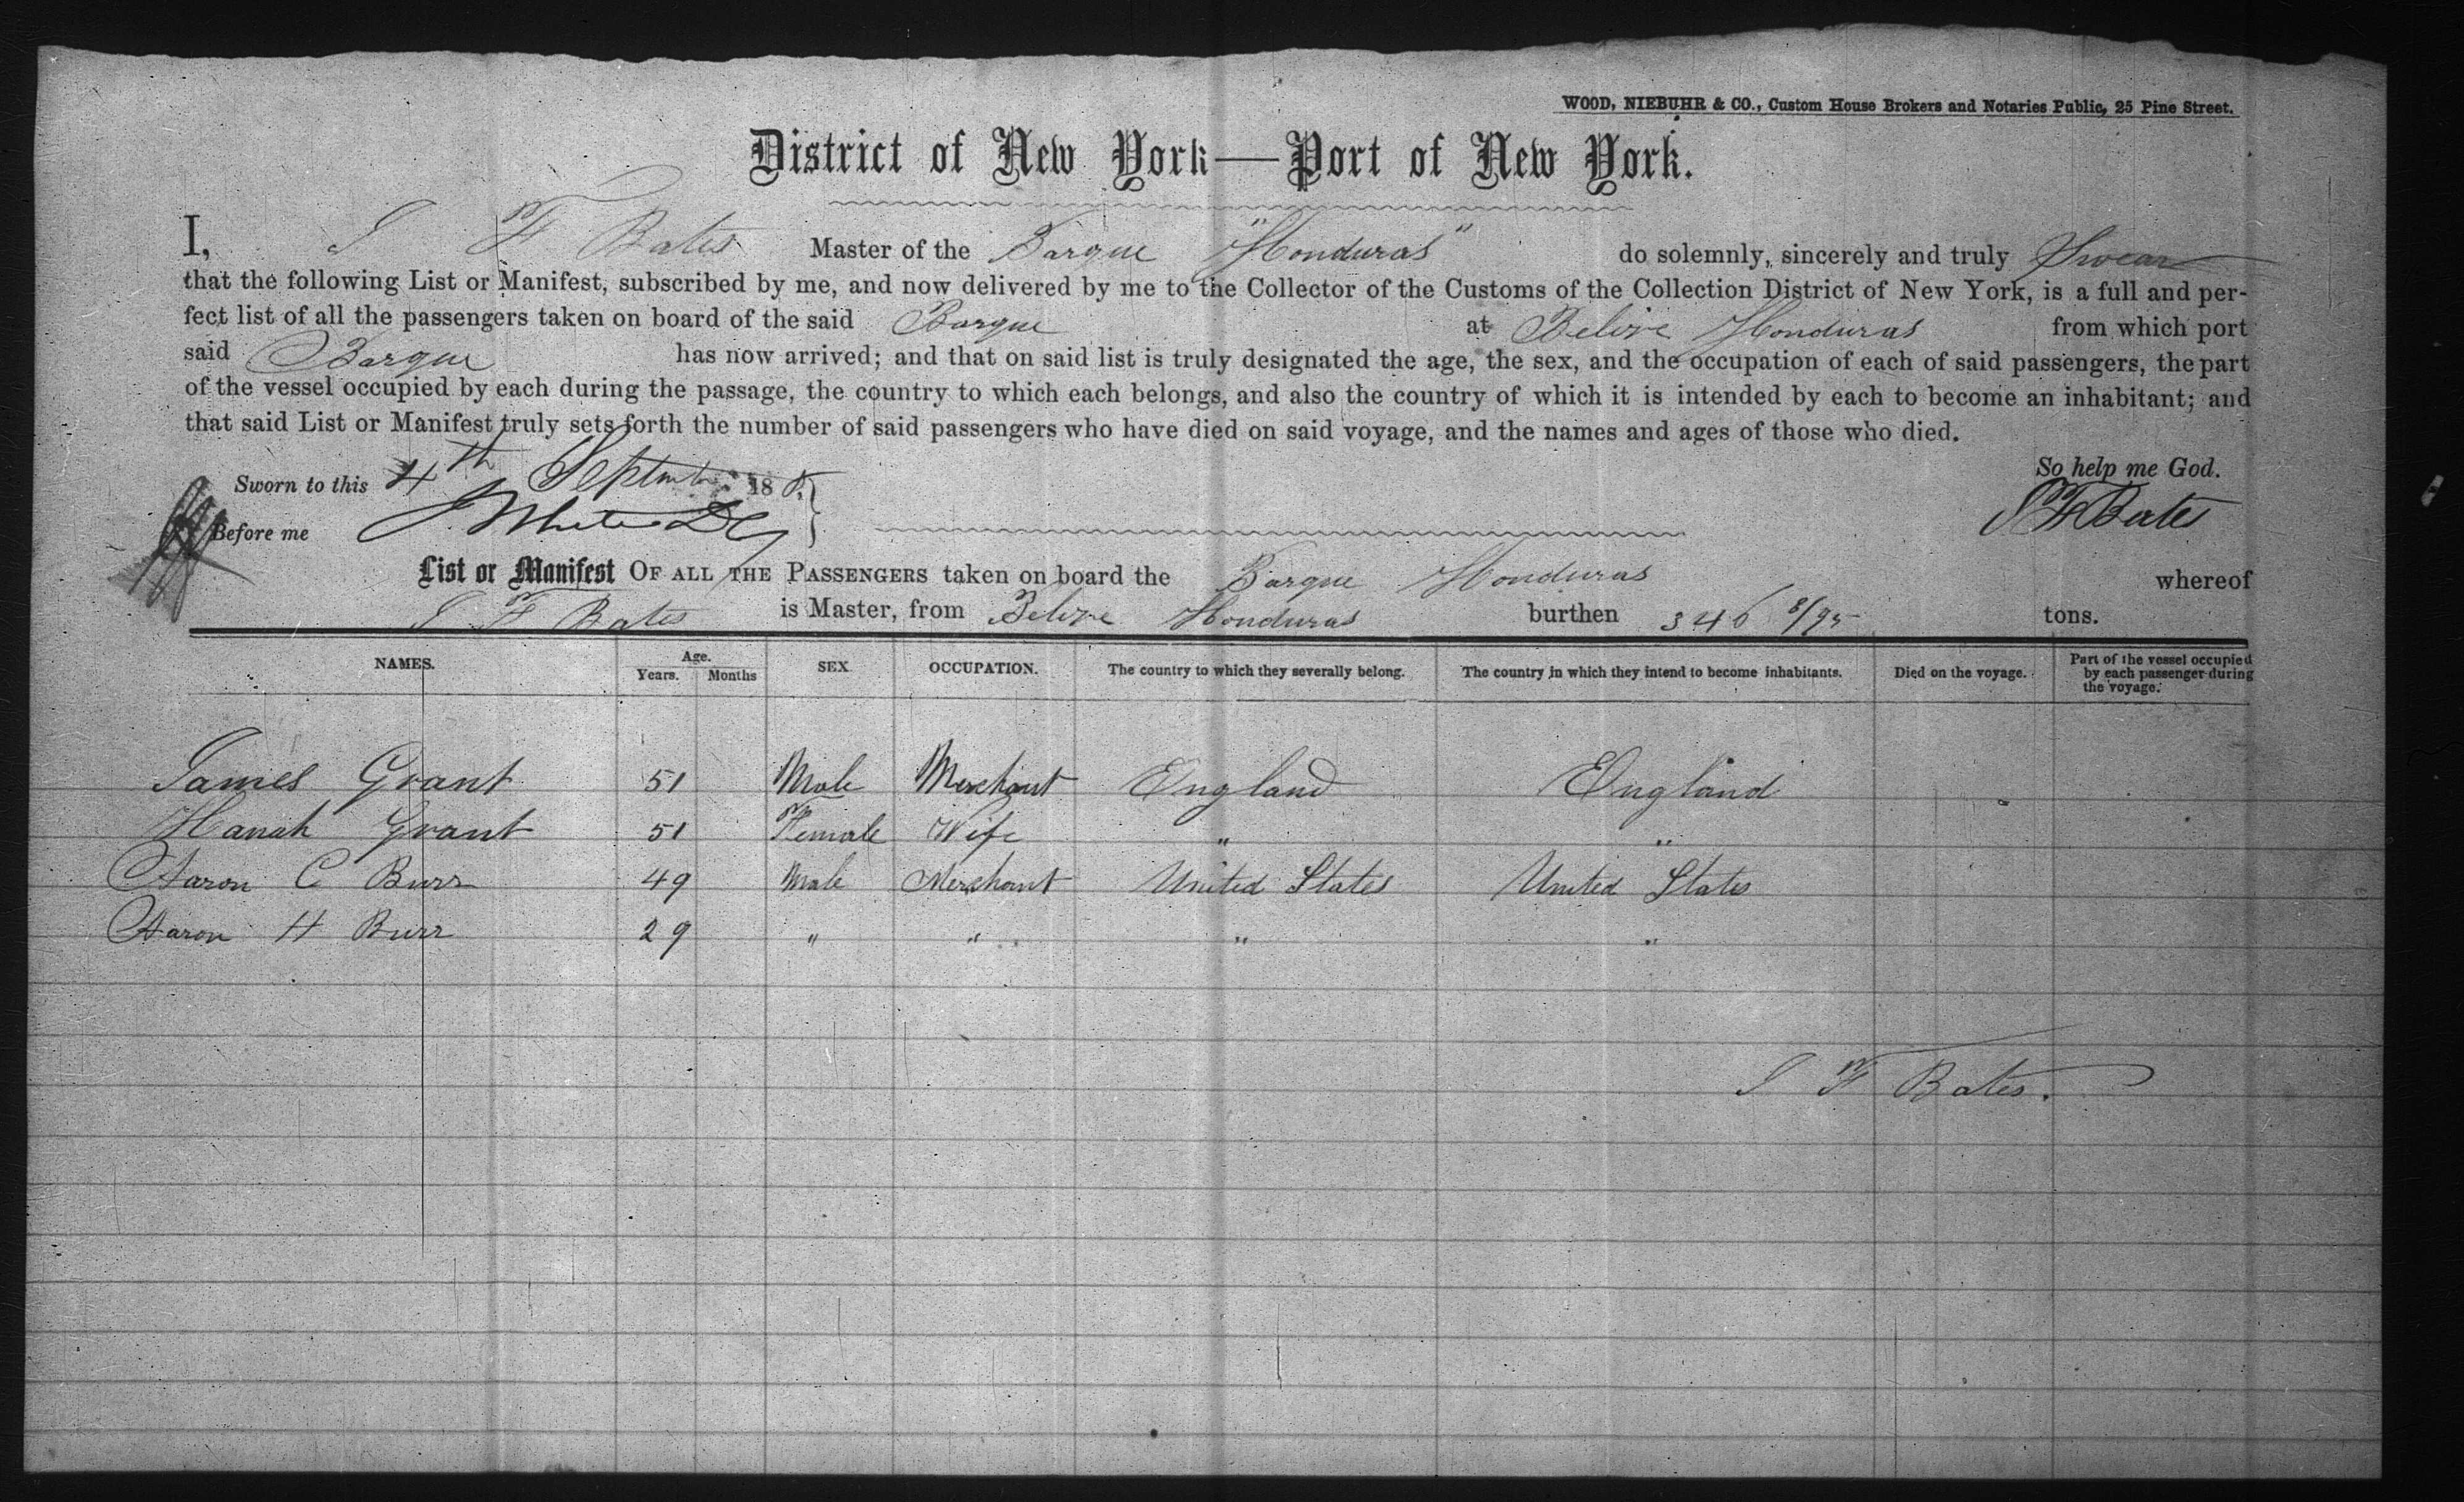 WOOD, NIEBUHR & CO., Custom House Brokers and Notaries Public, 25 Pine Street.
District of New York—Port of New York.
I, S F Bates Master of the Barque "Honduras" do solemnly, sincerely and truly Swear
that the following List or Manifest, subscribed by me, and now delivered by me to the Collector of the Customs of the Collection District of New York, is a full and per-
fect list of all the passengers taken on board of the said Barque at Belize Honduras from which port
said Barque has now arrived; and that on said list is truly designated the age, the sex, and the occupation of each of said passengers, the part
of the vessel occupied by each during the passage, the country to which each belongs, and also the country of which it is intended by each to become an inhabitant; and
that said List or Manifest truly sets forth the number of said passengers who have died on said voyage, and the names and ages of those who died.
So help me God.
Sworn to this 4th September 188
S F Bates
Before me J White DC
List or Manifest OF ALL THE PASSENGERS taken on board the Barque Honduras whereof
S F Bates is Master, from Belize Honduras burthen 346 8/95 tons.
NAMES. Age. Years. Months SEX. OCCUPATION. The country to which they severally belong. The country in which they intend to become inhabitants. Died on the voyage. Part of the vessel occupied by each passenger during the voyage.
James Grant 51 Male Merchant England England
Hanah Grant 51 Female Wife " "
Aaron C Burr 49 Male Merchant United States United States
Aaron H Burr 29 " " " "
S F Bates.